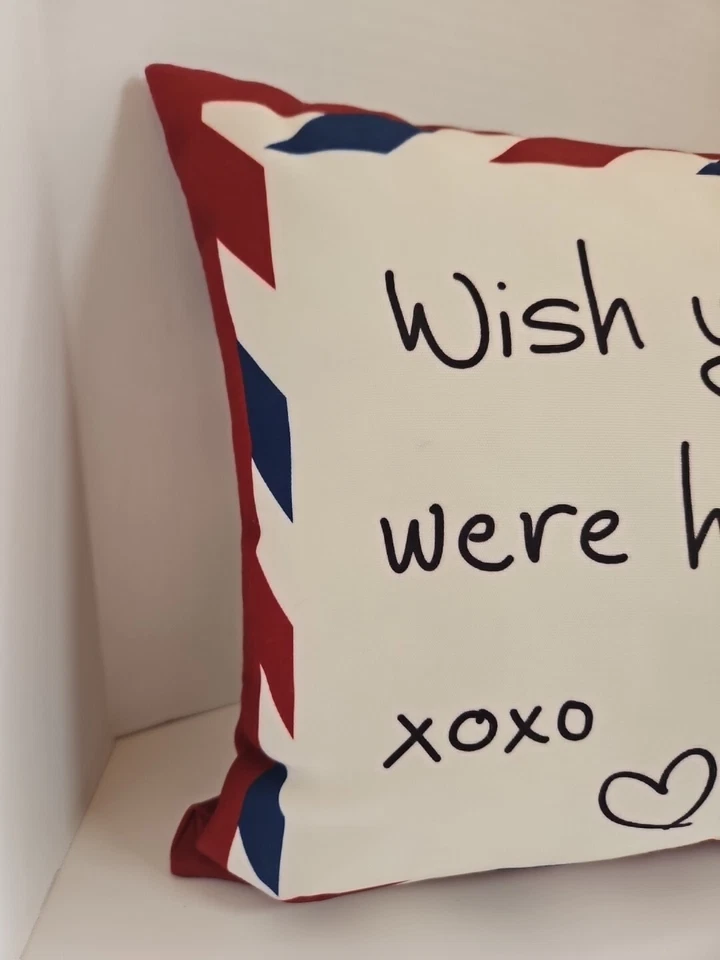 Wish y
were h
xoxo